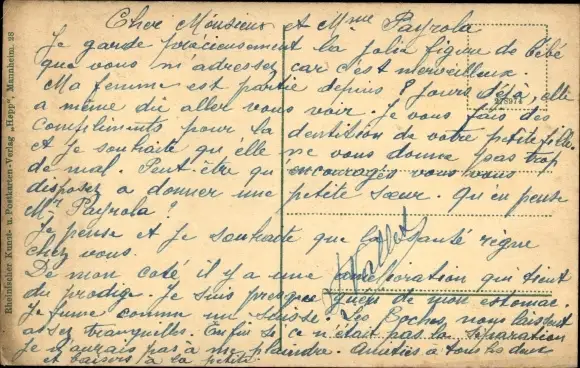 Cher Monsieur et Mme Payrola
Je garde précieusement la jolie figure de bébé
que vous m'adressez car c'est merveilleux.
Ma femme est partie depuis 8 jours déjà, elle
a même dû aller vous voir. Je vous fais des
compliments pour la dentition de votre petite fille.
et je souhaite qu'elle ne vous donne pas trop
de mal. Peut être qu'encouragés vous vous
disposez a donner une petite sœur. Qu'en pense
Mr Payrola?
Je pense et je souhaite que la santé règne
chez vous.
De mon coté il y a une amélioration qui tient
du prodige. Je suis presque guéri de mon estomac.
Je fume comme un Suisse. Les Boches nous laissent
assez tranquilles. Enfin si ce n'était pas la séparation
je n'aurais pas à me plaindre. Amitiés à tous les deux
et baisers à la petite.
Vallet
Rheinischer Kunst- u. Postkarten-Verlag „Hepp", Mannheim. 28